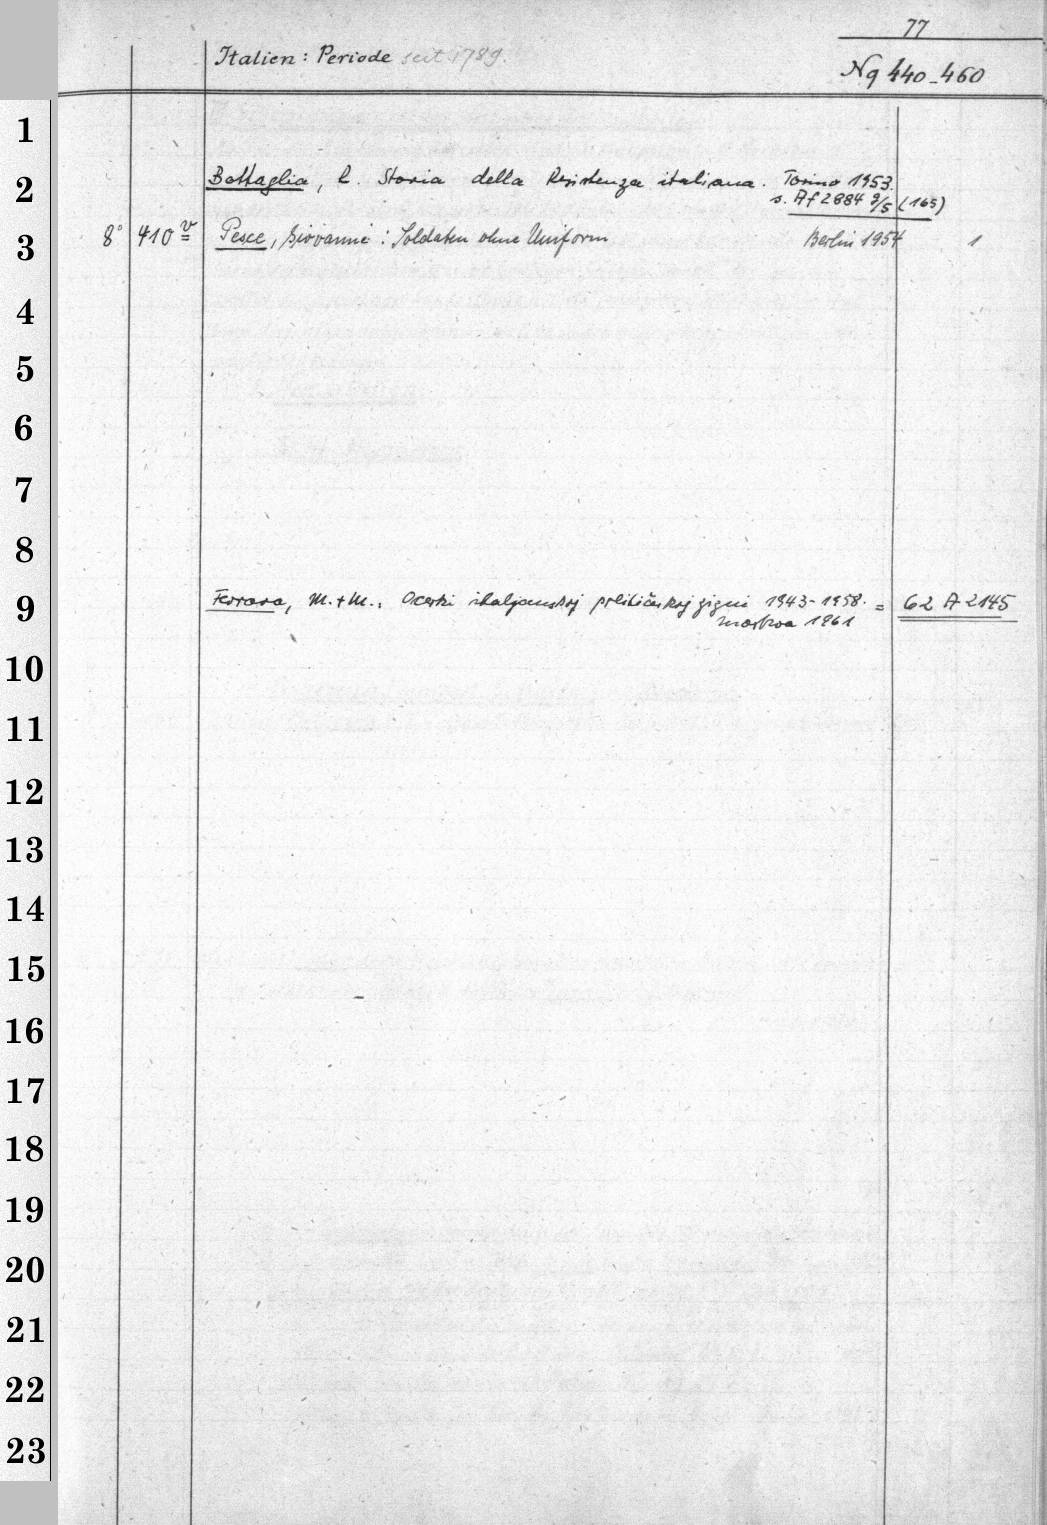 77
Italien: Periode seit 1789.
Nq 440-460
1
2 Battaglia, R. Storia della Resistenza italiana. Torino 1953.
s. Af 2884 3/5 (165)
3 8° 410 v Pesce, Giovanni: Soldaten ohne Uniform Berlin 1954 1
4
5
6
7
8
9 Ferrara, M. + M., Ocerki italjanskoj političeskoj zizni 1943-1958. = 62 A 2145
Moskva 1961
10
11
12
13
14
15
16
17
18
19
20
21
22
23